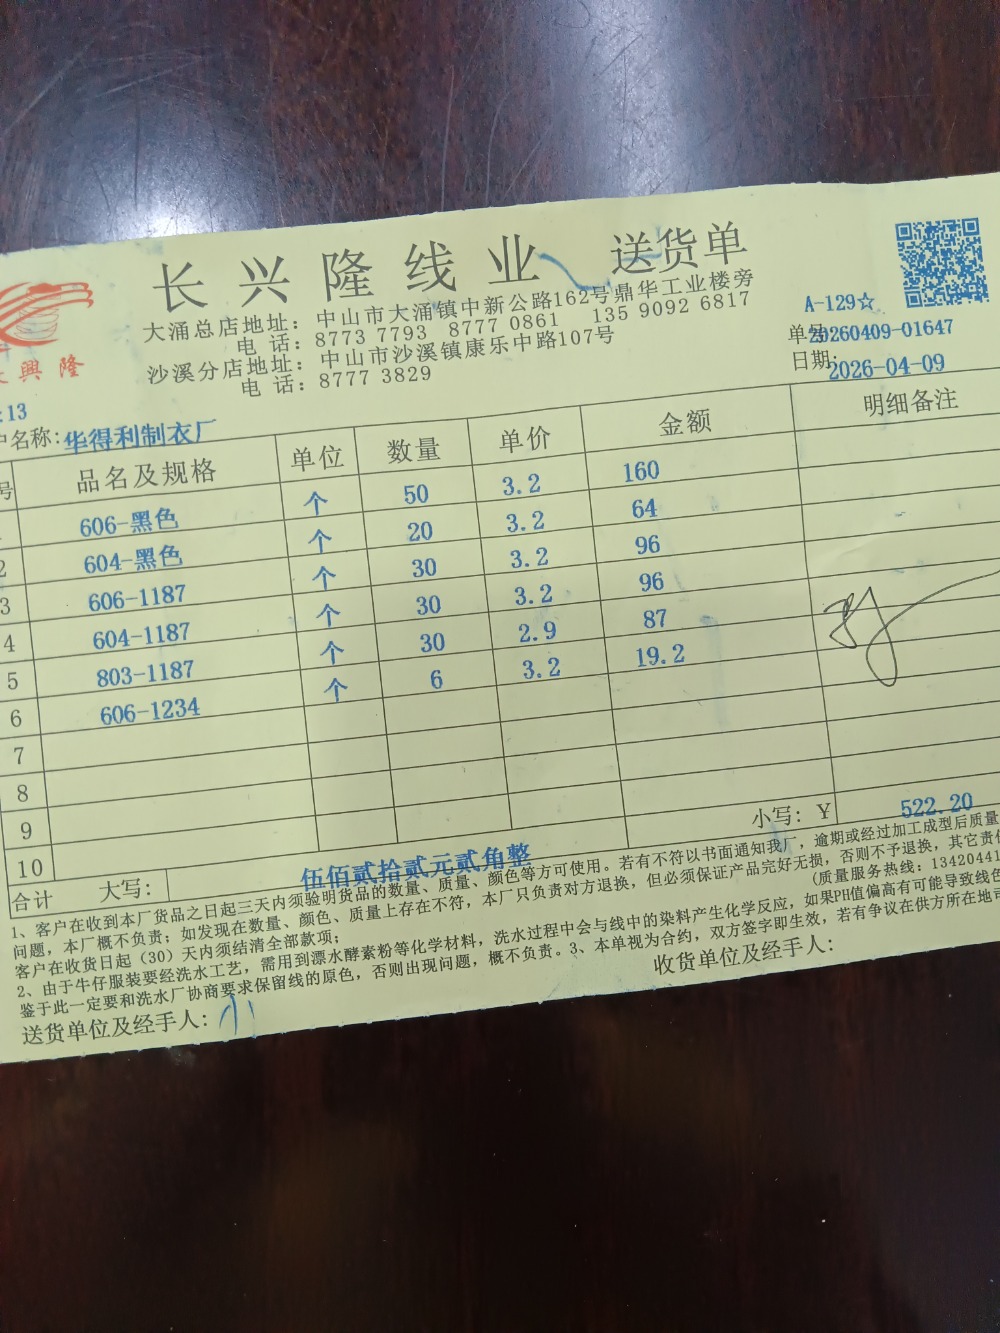 长兴隆线业 送货单
大涌总店地址：中山市大涌镇中新公路162号鼎华工业楼旁
电 话：8773 7793 8777 0861 135 9092 6817
沙溪分店地址：中山市沙溪镇康乐中路107号
电 话：8777 3829
興 隆
A-129☆
单号:20260409-01647
日期:2026-04-09
:13
户名称:华得利制衣厂
号 品名及规格 单位 数量 单价 金额 明细备注
606-黑色 个 50 3.2 160
2 604-黑色 个 20 3.2 64
3 606-1187 个 30 3.2 96
4 604-1187 个 30 3.2 96
5 803-1187 个 30 2.9 87
6 606-1234 个 6 3.2 19.2
7
8
9
10
合计 大写: 伍佰贰拾贰元贰角整 小写: Y 522.20
1、客户在收到本厂货品之日起三天内须验明货品的数量、质量、颜色等方可使用。若有不符以书面通知我厂，逾期或经过加工成型后质量
问题，本厂概不负责；如发现在数量、颜色、质量上存在不符，本厂只负责对方退换，但必须保证产品完好无损，否则不予退换，其它责任
客户在收货日起（30）天内须结清全部款项； (质量服务热线: 13420441
2、由于牛仔服装要经洗水工艺，需用到漂水酵素粉等化学材料，洗水过程中会与线中的染料产生化学反应，如果PH值偏高有可能导致线色
鉴于此一定要和洗水厂协商要求保留线的原色，否则出现问题，概不负责。3、本单视为合约，双方签字即生效，若有争议在供方所在地
送货单位及经手人: 收货单位及经手人: